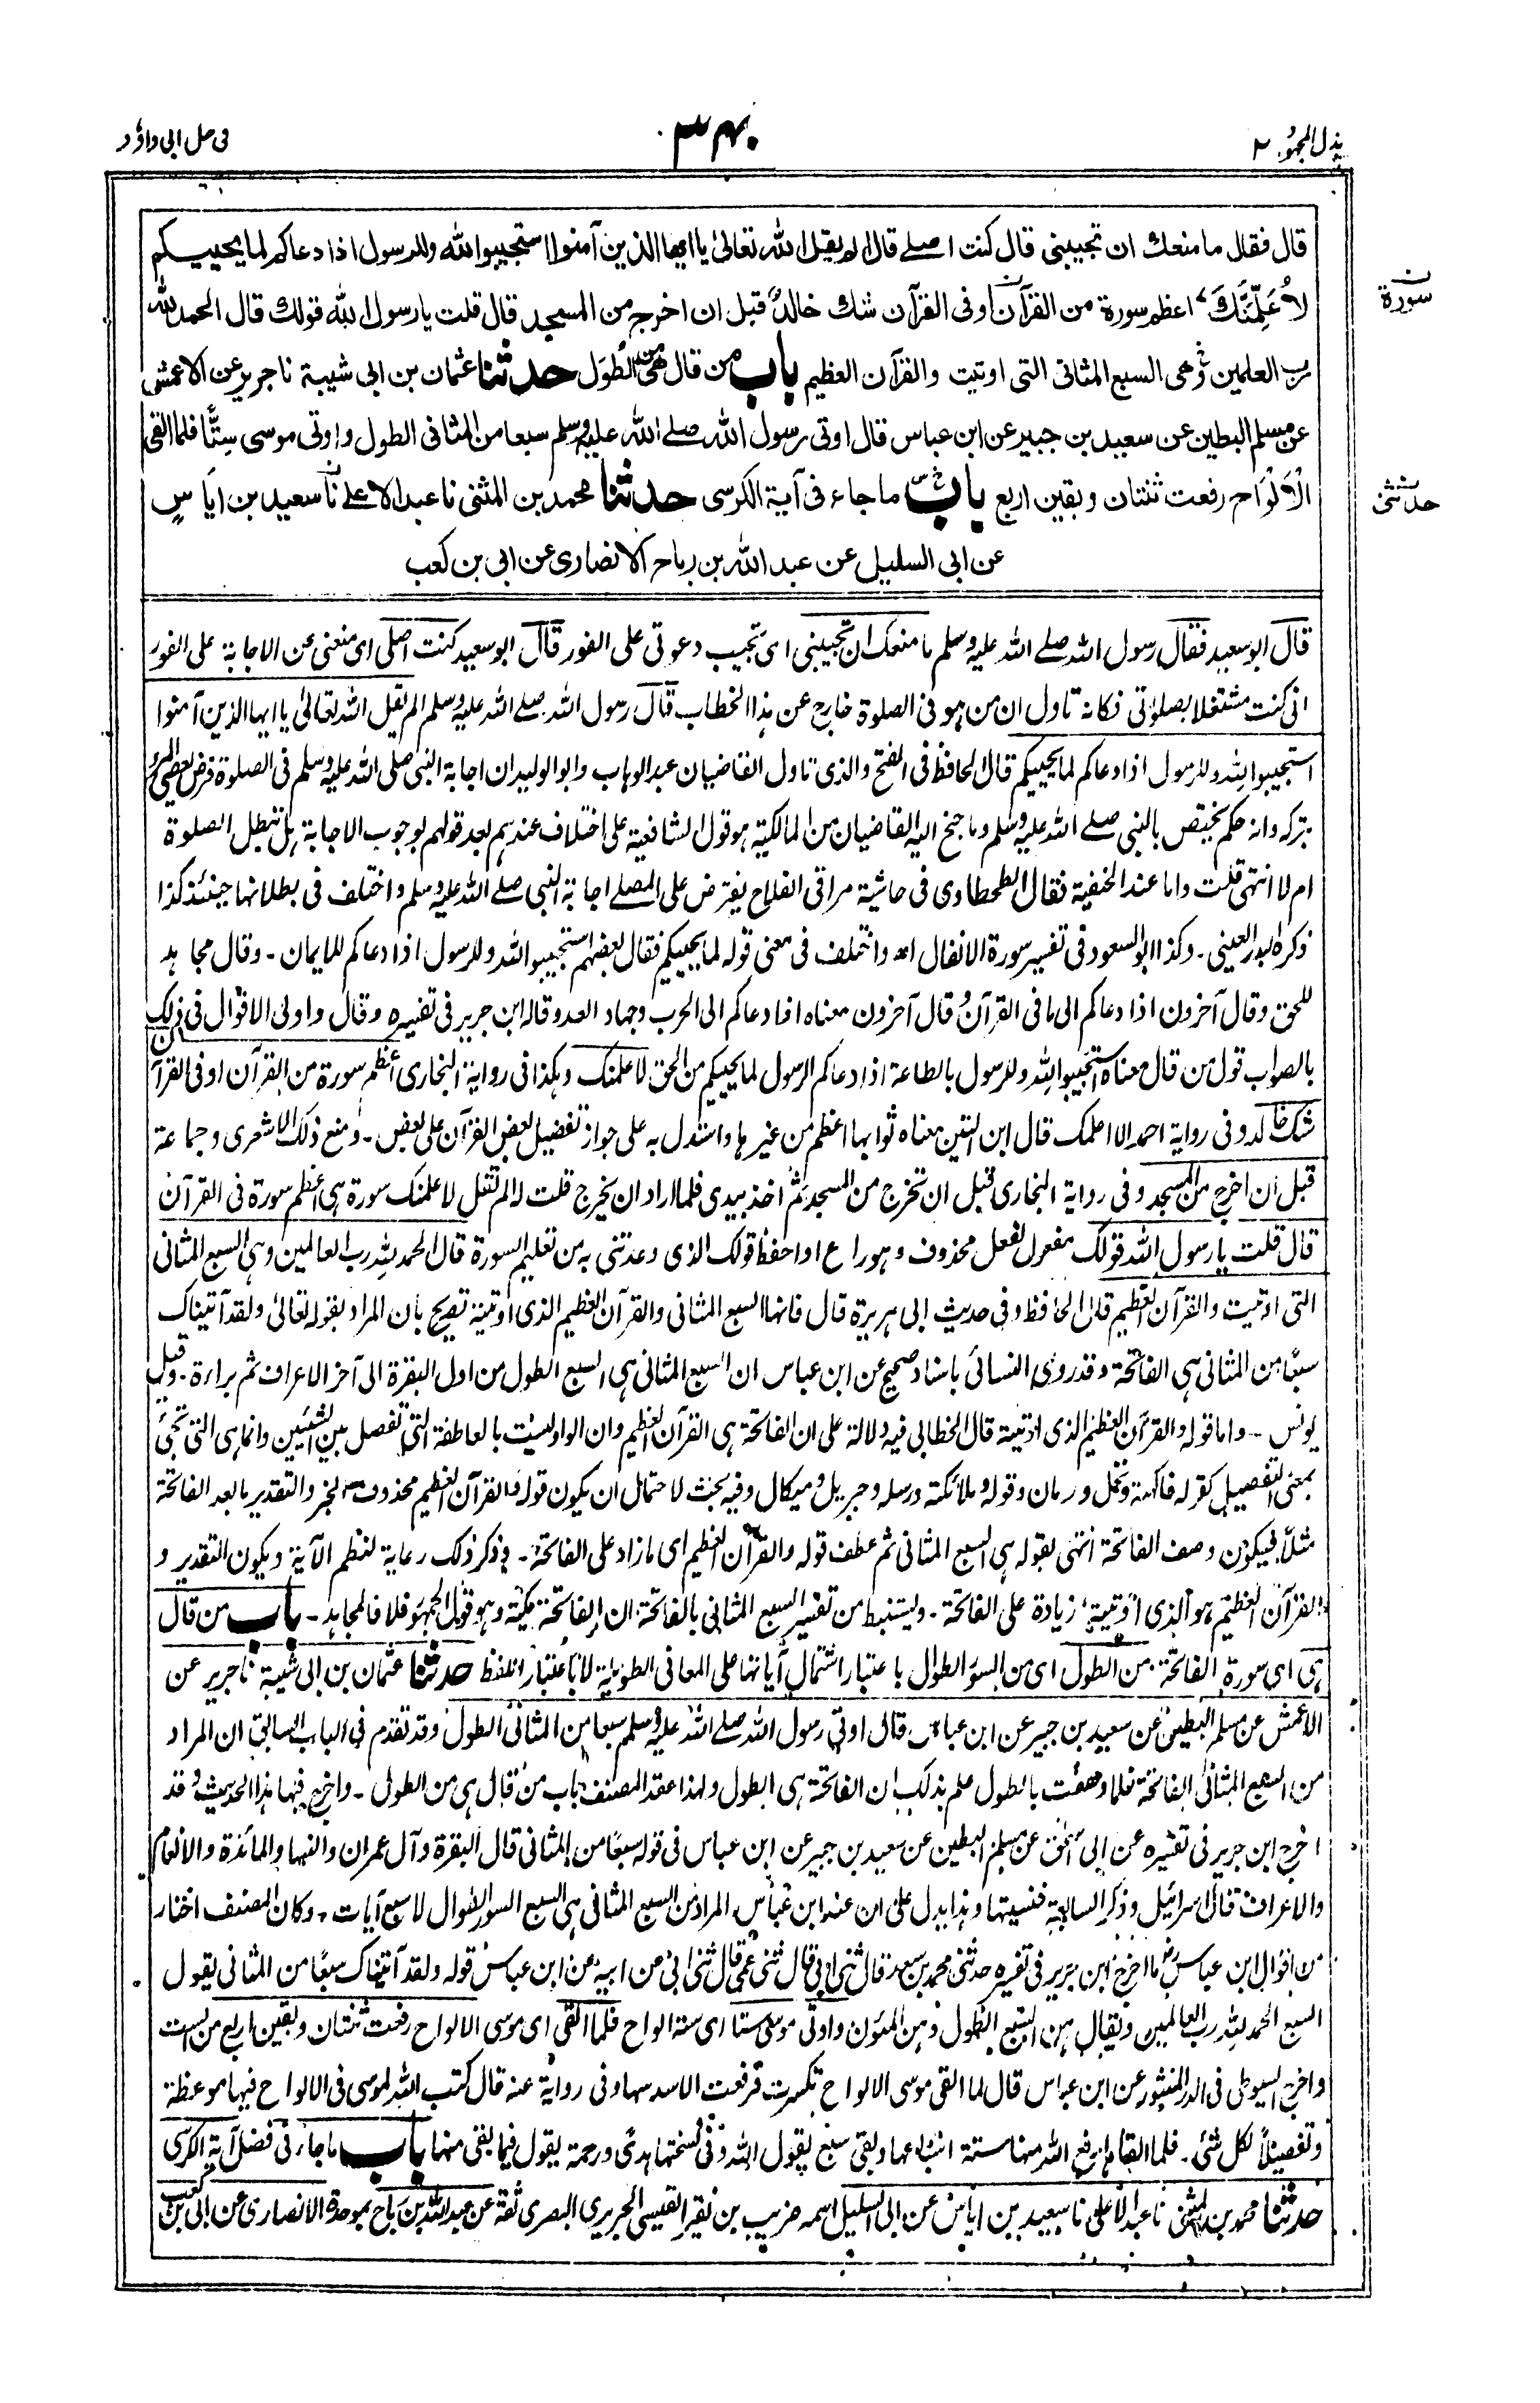 بذل المجهود ٢
٣٤٠
فى حل ابى داؤد
قال فقال ما منعك ان تجيبنى قال كنت اصلے قال الم يقل الله تعالىٰ يا ايها الذين آمنوا استجيبوا لله وللرسول اذا دعاكم لما يحييكم
لأُعَلِّمَنَّكَ اعظم سورة من القرآن اوفى القرآن شك خالدٌ قبل ان اخرج من المسجد قال قلت يا رسول الله قولك قال الحمد لله
سورة
رب العلمين وهى السبع المثانى التى اوتيت والقرآن العظيم باب من قال هى من الطُّوَل حدثنا عثمان بن ابى شيبة نا جرير عن الاعمش
عن مسلم البطين عن سعيد بن جبير عن ابن عباس قال اوتى رسول الله صلے الله عليه وسلم سبعا من المثانى الطول واوتى موسى سِتًّا فلما القى
الْاَلْوَاح رفعت ثنتان وبقين اربع باب ما جاء فى آية الكرسى حدثنا محمد بن المثنى نا عبد الاعلے نا سعيد بن اياسٍ
حدثنى
عن ابى السليل عن عبد الله بن رباح الانصارى عن ابى بن كعب
قال ابو سعيد فقال رسول الله صلے الله عليه وسلم ما منعك ان تجيبنى اى تجيب دعوتى على الفور قال ابو سعيد كنت اصلى اى منعنى عن الاجابة على الفور
انى كنت مشتغلا بصلوٰتى فكانه تاول ان من هو فى الصلوة خارج عن هذا الخطاب قال رسول الله صلے الله عليه وسلم الم يقل الله تعالىٰ يا ايها الذين آمنوا
استجيبوا لله وللرسول اذا دعاكم لما يحييكم قال الحافظ فى الفتح والذى تاول القاضيان عبد الوهاب وابو الوليد ان اجابة النبى صلى الله عليه وسلم فى الصلوة فرض يعصى المرء
بتركه وانه حكم يختص بالنبى صلے الله عليه وسلم وما جنح اليه القاضيان من المالكية هو قول الشافعية على اختلاف عندهم بعد قولهم بوجوب الاجابة هل تبطل الصلوة
ام لا انتهى قلت واما عند الحنفية فقال الطحطاوى فى حاشية مراقى الفلاح يفترض على المصلے اجابة النبى صلے الله عليه وسلم واختلف فى بطلانها حينئذ كذا
ذكره البدر العينى۔ وكذا ابو السعود فى تفسير سورة الانفال اھ واختلف فى معنى قوله لما يحييكم فقال بعضهم استجيبوا لله وللرسول اذا دعاكم للايمان۔ وقال مجاهد
للحق وقال آخرون اذا دعاكم الى ما فى القرآن وقال آخرون معناه اذا دعاكم الى الحرب وجهاد العدو قاله ابن جرير فى تفسيره وقال واولى الاقوال فى ذلك
بالصواب قول من قال معناه استجيبوا لله وللرسول بالطاعة اذا دعاكم الرسول لما يحييكم من الحق لاعلمنك وهكذا فى رواية البخارى اعظم سورة من القرآن اوفى القرآن
شك خالد وفى رواية احمد الا اعلمك قال ابن التين معناه ثوابها اعظم من غيرها واستدل به على جواز تفضيل بعض القرآن على بعض۔ ومنع ذلك الاشعرى وجماعة
قبل ان اخرج من المسجد وفى رواية البخارى قبل ان تخرج من المسجد ثم اخذ بيدى فلما اراد ان يخرج قلت له الم تقل لاعلمنك سورة هى اعظم سورة فى القرآن
قال قلت يا رسول الله قولك مفعول لفعل محذوف وهو راع او احفظ قولك الذى وعدتنى به من تعليم السورة قال الحمد لله رب العالمين وهى السبع المثانى
التى اوتيت والقرآن العظيم قال الحافظ وفى حديث ابى هريرة قال فانها السبع المثانى والقرآن العظيم الذى اوتيته تصريح بان المراد بقوله تعالىٰ ولقد آتيناك
سبعًا من المثانى هى الفاتحة وقد روى النسائى باسناد صحيح عن ابن عباس ان السبع المثانى هى السبع الطول من اول البقرة الى آخر الاعراف ثم براءة۔ وقيل
يونس۔ واما قوله والقرآن العظيم الذى اوتيته قال الخطابى فيه دلالة على ان الفاتحة هى القرآن العظيم وان الواو ليست بالعاطفة التى تفصل بين الشيئين وانما هى التى تجئ
بمعنى التفصيل كقوله فاكهة ونخل ورمان وقوله وملائكته ورسله وجبريل وميكال وفيه بحث لاحتمال ان يكون قوله والقرآن العظيم محذوف الخبر والتقدير ما بعد الفاتحة
مثلًا فيكون وصف الفاتحة انتهى بقوله هى السبع المثانى ثم عطف قوله والقرآن العظيم اى ما زاد على الفاتحة۔ وذكر ذلك رعاية لنظم الآية ويكون التقدير و
القرآن العظيم هو الذى اوتيته زيادة على الفاتحة۔ ويستنبط من تفسير السبع المثانى بالفاتحة ان الفاتحة مكية وهو قول الجمهور خلافا لمجاهد۔ باب من قال
هى اى سورة الفاتحة من الطول اى من السور الطوال باعتبار اشتمال آياتها على المعانى الطويلة لا باعتبار اللفظ حدثنا عثمان بن ابى شيبة نا جرير عن
الاعمش عن مسلم البطين عن سعيد بن جبير عن ابن عباس قال اوتى رسول الله صلے الله عليه وسلم سبعا من المثانى الطول وقد تقدم فى الباب السابق ان المراد
من السبع المثانى الفاتحة فلما وصفت بالطول علم بذلك ان الفاتحة هى الطول ولهذا عقد المصنف باب من قال هى من الطول۔ واخرج فيها هذا الحديث وقد
اخرج ابن جرير فى تفسيره عن ابى اسحٰق عن مسلم البطين عن سعيد بن جبير عن ابن عباس فى قوله سبعًا من المثانى قال البقرة وآل عمران والنساء والمائدة والانعام
والاعراف قال اسرائيل وذكر السابعة فنسيتها وهذا يدل على ان عند ابن عباس المراد من السبع المثانى هى السبع السور الطوال لا سبع آيات۔ وكان المصنف اختار
من اقوال ابن عباس ما اخرج ابن جرير فى تفسيره حدثنى محمد بن سعد قال ثنى ابى قال ثنى عمى قال ثنى ابى عن ابيه عن ابن عباس قوله ولقد آتيناك سبعًا من المثانى يقول
السبع الحمد لله رب العالمين ويقال هن السبع الطول وهن المئون واوتى موسى ستا اى ستة الواح فلما القى اى موسى الالواح رفعت ثنتان وبقين اربع من الست
واخرج السيوطى فى الدر المنثور عن ابن عباس قال لما القى موسى الالواح تكسرت فرفعت الا سدسها وفى رواية عنه قال كتب الله لموسى فى الالواح فيها موعظة
وتفصيلًا لكل شئ۔ فلما القاها رفع الله منها ستة اسباعها وبقى سبع يقول الله وفى نسختها هدى ورحمة يقول فيما بقى منها باب ما جاء فى فضل آية الكرسى
حدثنا محمد بن المثنى نا عبد الاعلى نا سعيد بن اياس عن ابى السليل اسمه ضريب بن نقير القيسى الجريرى البصرى ثقة عن عبد الله بن رباح بموحدة الانصارى عن ابى بن كعب